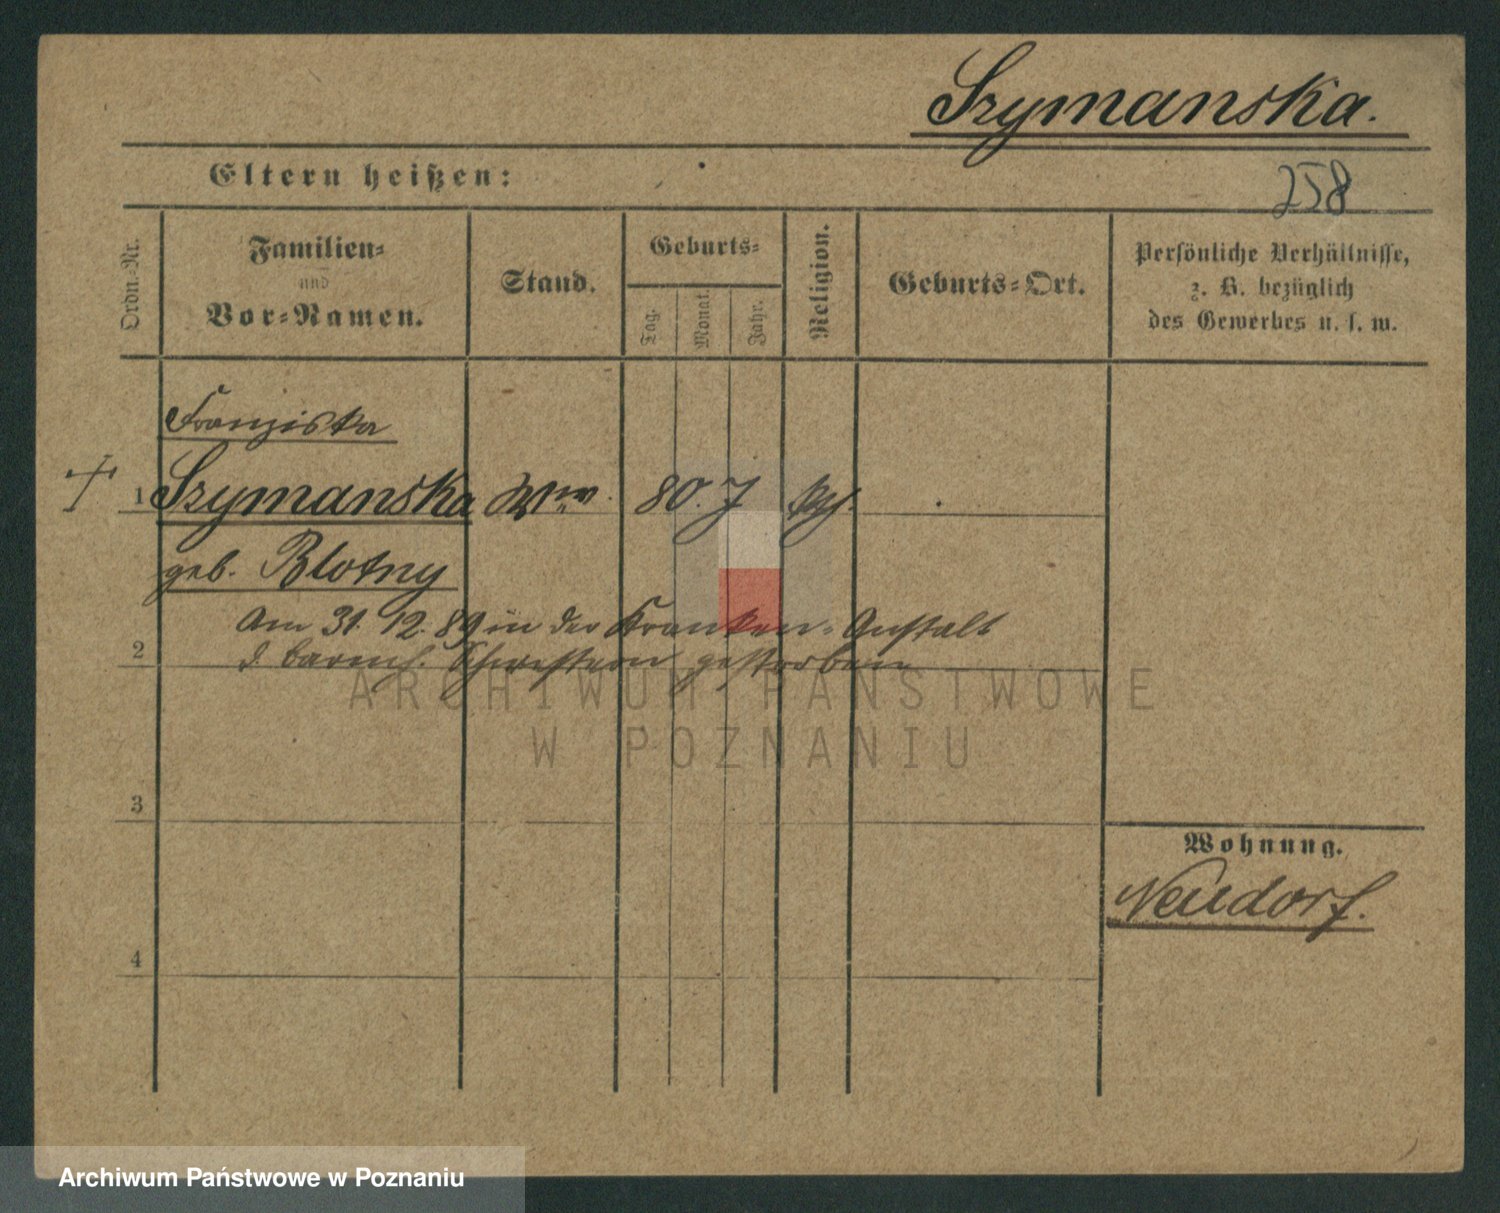 Szymanska.
Eltern heißen:
258
Ordn.-Nr.
Familien-
und
Vor-Namen.
Stand.
Geburts-
Tag.
Monat.
Jahr.
Religion.
Geburts-Ort.
Persönliche Verhältnisse,
z. B. bezüglich
des Gewerbes u. s. w.
Franziska
1 Szymanska Wwe. 80. J kth.
geb. Blotny
Am 31. 12. 89 in der Kranken-Anstalt
2
d. barmh. Schwestern gestorben
ARCHIWUM PAŃSTWOWE
W POZNANIU
3
Wohnung.
Neudorf.
4
Archiwum Państwowe w Poznaniu